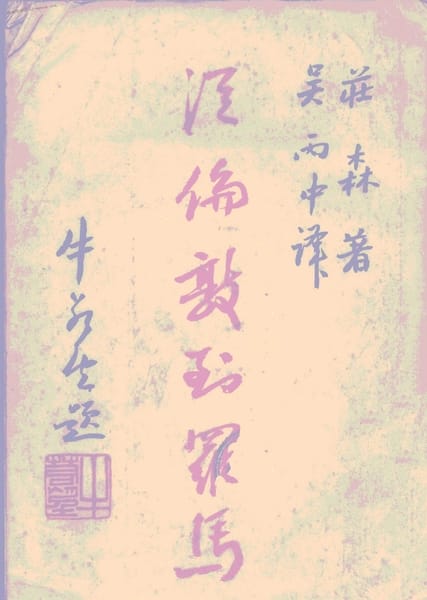 莊森著
吳丙中譯
從倫敦到羅馬
牛題